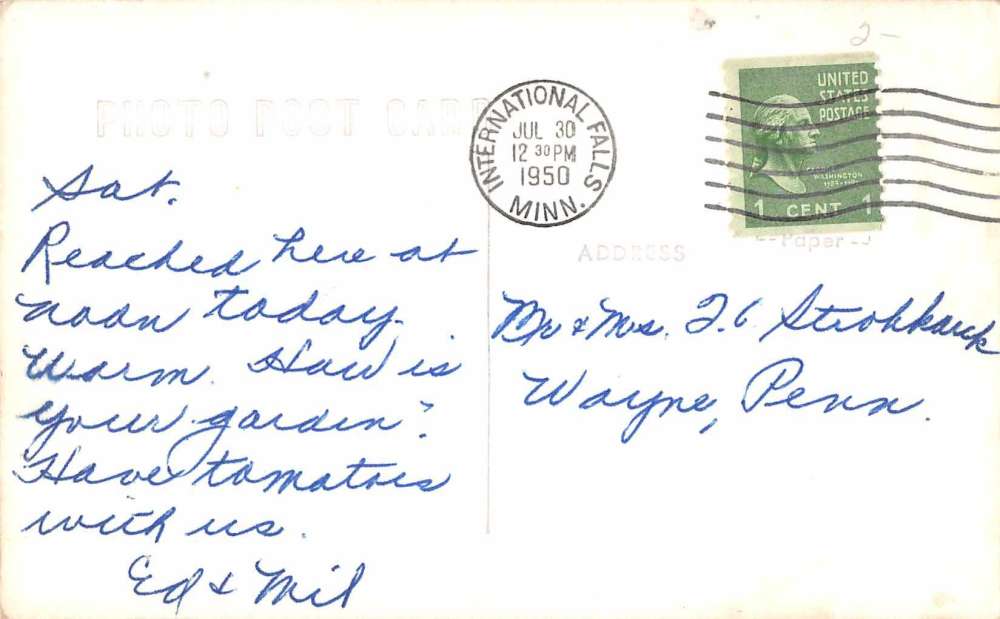 2-
UNITED
STATES
POSTAGE
WASHINGTON
1 CENT 1
PHOTO POST CARD
INTERNATIONAL FALLS
JUL 30
12 30 PM
1950
MINN.
Sat.
Reached here at
noon today.
Warm. How is
your garden?
Have tomatoes
with us.
Ed & Mil
ADDRESS
Paper
Mr & Mrs.
Wayne, Penn.